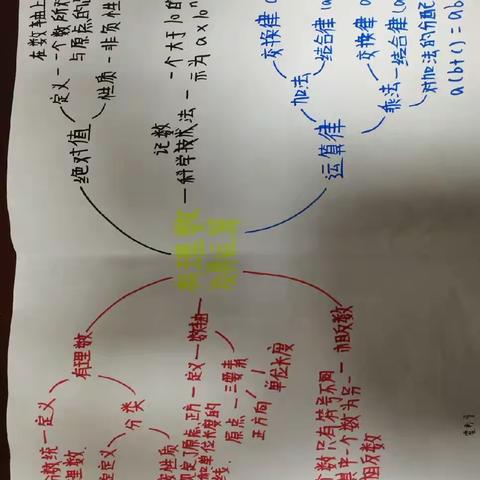 有理数
及其运算
有理数
定义
分类
数轴
定义
规定了原点、正方
和单位长度的
三要素
原点
正方向
单位长度
相反数
只有符号不同
一个数为另一
相反数
绝对值
定义
一个数所对
与原点的
在数轴上
性质
非负性
记数
科学技术法
一个大于10的
示为 a×10ⁿ
运算律
加法
交换律
结合律
乘法
交换律
结合律
对加法的分配
a(b+c)=ab